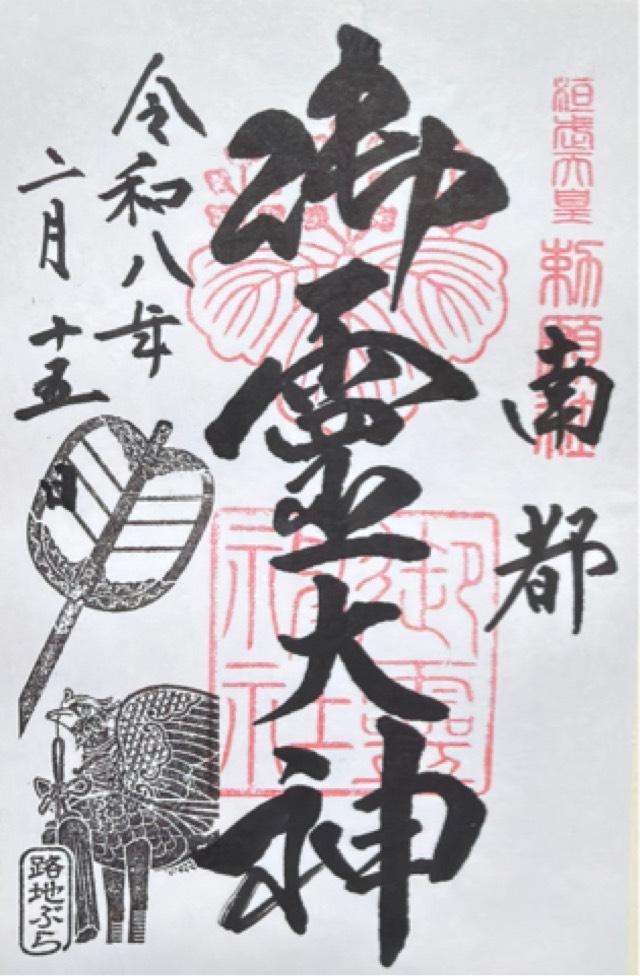 桓武天皇
勅願社
南都
御靈大神
御靈神社
令和八年
二月十五日
路地ぶら